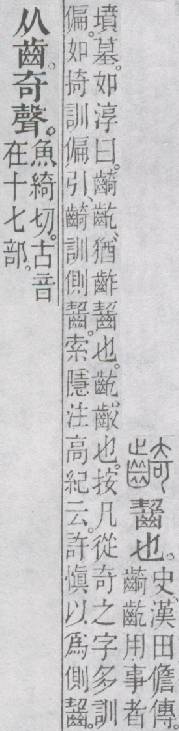 齮齧也。史、漢田儋傳。
齮齕用事者
墳墓。如淳曰。齮齕、猶齚齧也。齕、齩也。按凡從奇之字多訓
偏。如掎訓偏引、齮訓側齧。索隱注高紀云。許慎以爲側齧。
从齒。奇聲。魚綺切。古音
在十七部。